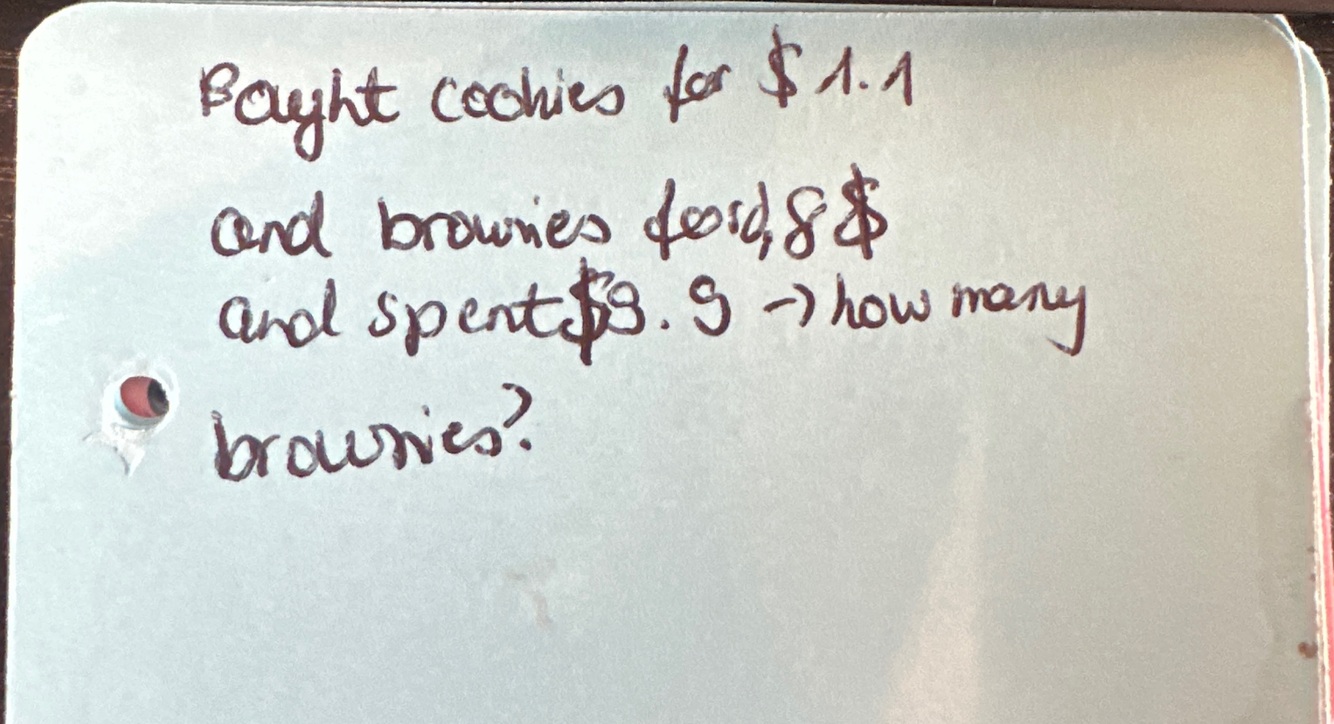 Bought cookies for $1.1
and brownies for 0,8$
and spent $9.9 → how many
brownies?